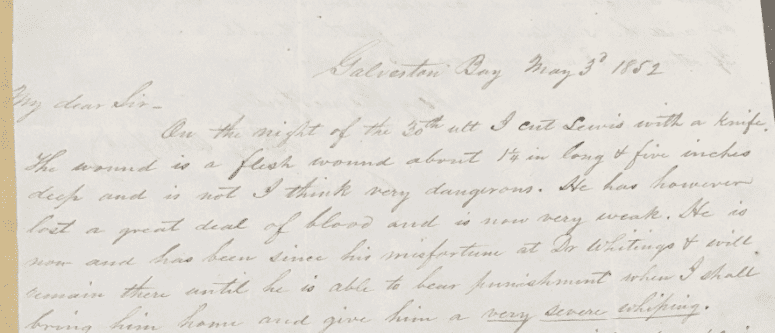 Galveston Bay May 3d 1852
My dear Sir—
On the night of the 30th ult I cut Lewis with a knife.
The wound is a flesh wound about 1¼ in long & five inches
deep and is not I think very dangerous. He has however
lost a great deal of blood and is now very weak. He is
now and has been since his misfortune at Dr Whitings & will
remain there until he is able to bear punishment when I shall
bring him home and give him a very severe whiping.